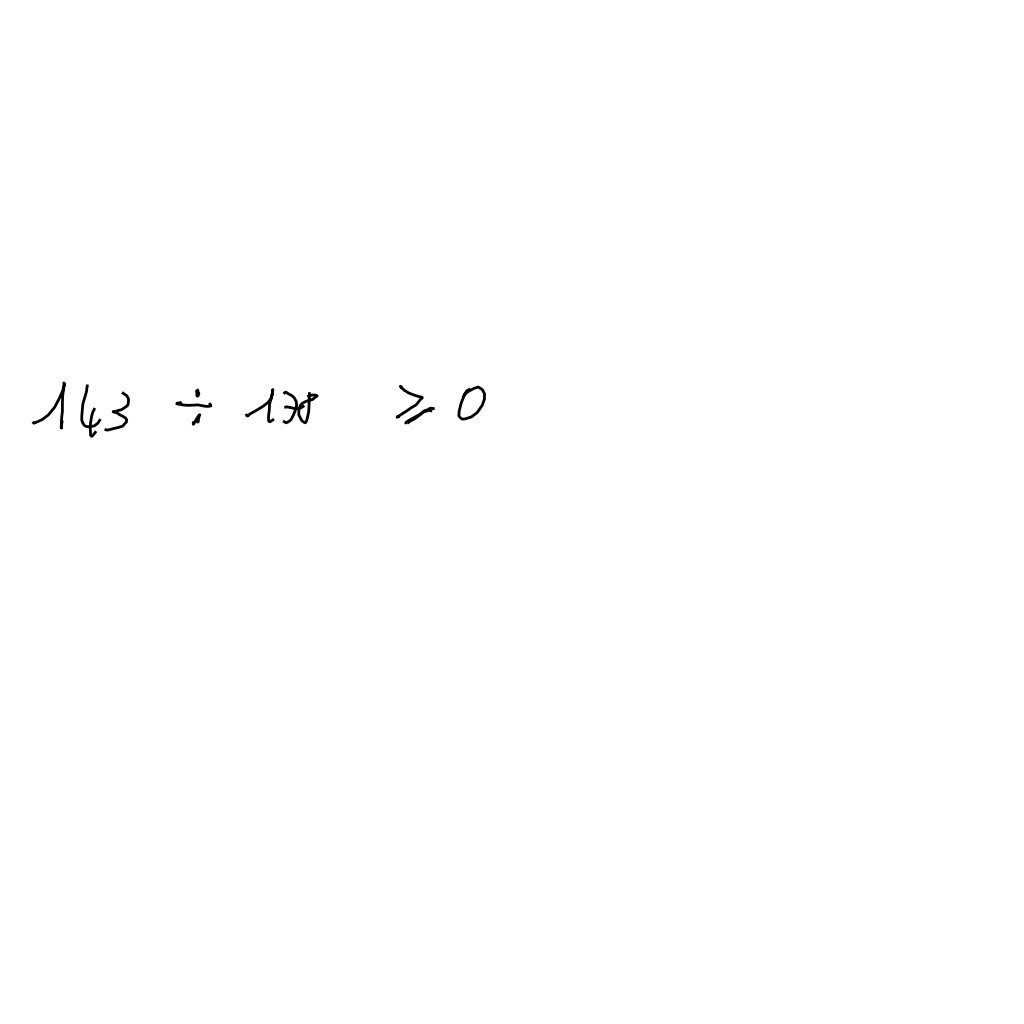 143 ÷ 138 ⩾ 0